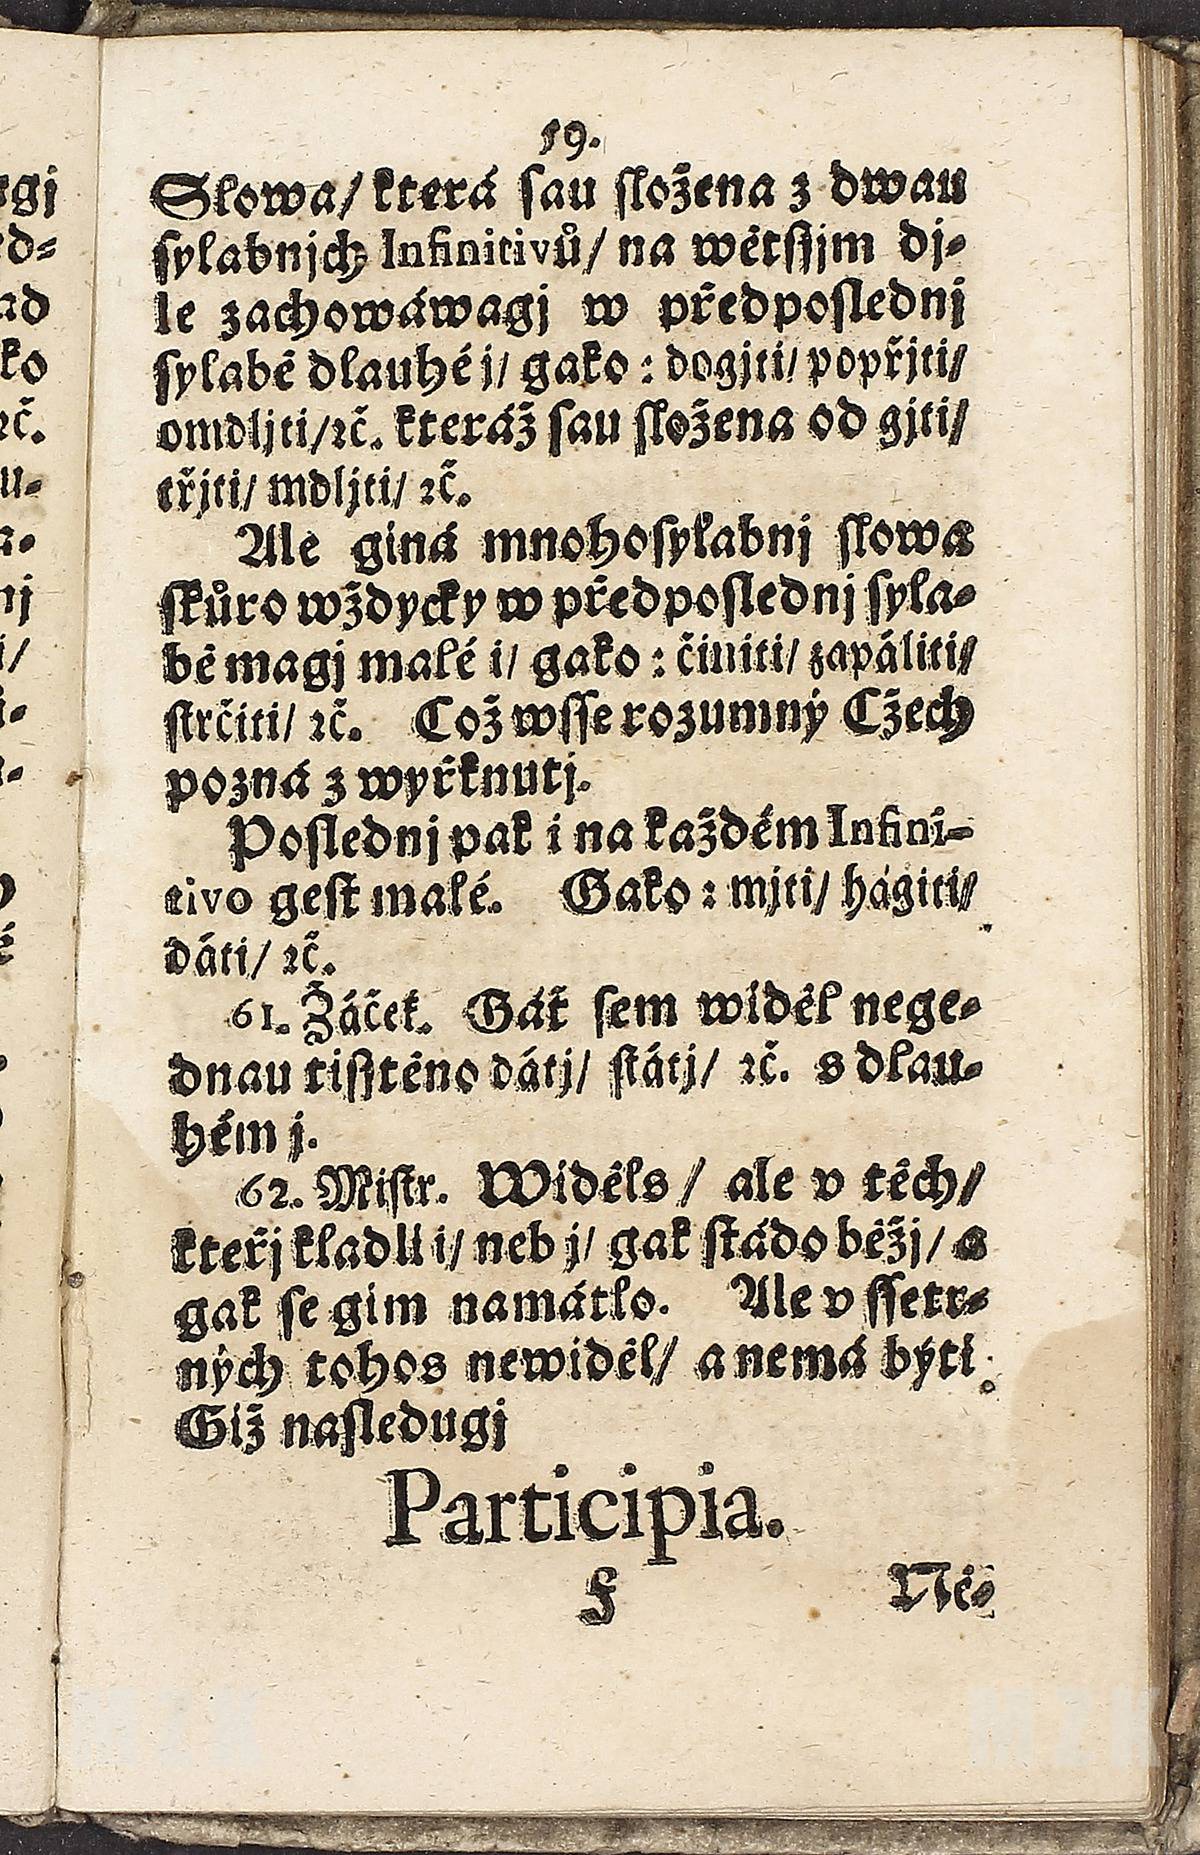 59.
Slowa/ která sau složena z dwau
sylabnjch Infinitivů/ na wětssjm dj-
le zachowáwagj w předposlednj
sylabě dlauhé j/ gako: dogjti/ popřjti/
omdljti/ ꝛč. kteráž sau složena od gjti/
třjti/ mdljti/ ꝛč.
Ale giná mnohosylabnj slowa
skůro wždycky w předposlednj syla-
bě magj malé i/ gako: činiti/ zapáliti/
strčiti/ ꝛč. Což wsse rozumný Cžech
pozná z wyřknutj.
Poslednj pak i na každém Infini-
tivo gest malé. Gako: mjti/ hágiti/
dáti/ ꝛč.
61. Žáček. Gáť sem widěl nege-
dnau tisstěno dátj/ státj/ ꝛč. s dlau-
hém j.
62. Mistr. Widěls/ ale v těch/
kteřj kladli i/ neb j/ gak stádo běžj/ a
gak se gim namátlo. Ale v ssetr-
ných tohos newiděl/ a nemá býti.
Giž nasledugj
Participia.
F Ně-
gj
d-
ad
ko
ꝛč.
u-
a-
nj
i/
MZK
MZK